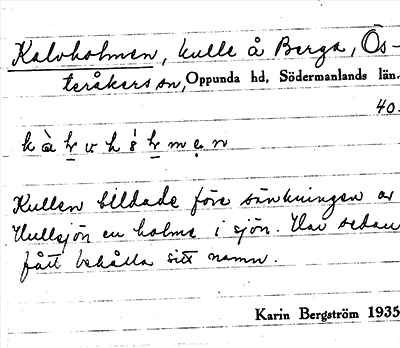 Kalvholmen, kulle å Berga, Ös-
teråkers sn, Oppunda hd, Södermanlands län.
40.
Kullen bildade före sänkningen av
Hullsjön en holme i sjön. Har sedan
fått behålla sitt namn.
Karin Bergström 1935